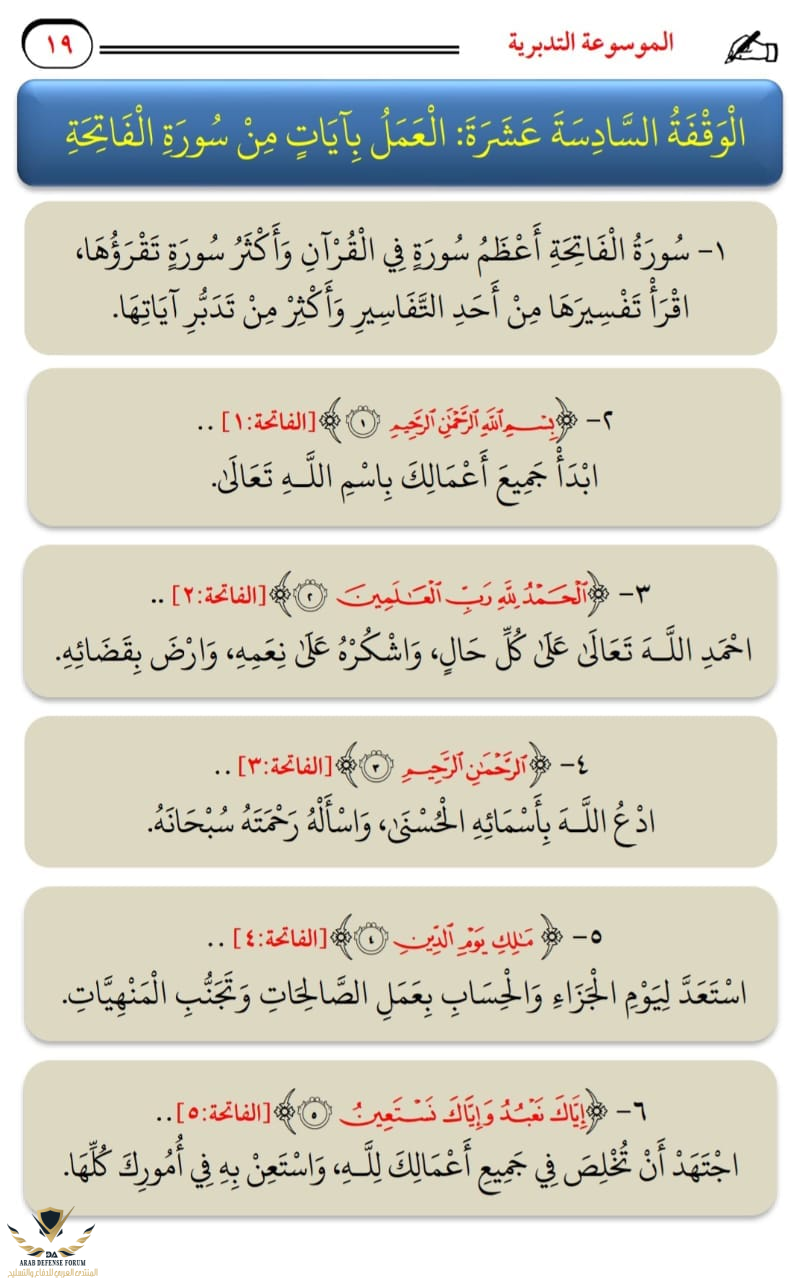 الموسوعة التدبرية
١٩
الْوَقْفَةُ السَّادِسَةَ عَشَرَةَ: الْعَمَلُ بِآيَاتٍ مِنْ سُورَةِ الْفَاتِحَةِ
١- سُورَةُ الْفَاتِحَةِ أَعْظَمُ سُورَةٍ فِي الْقُرْآنِ وَأَكْثَرُ سُورَةٍ تَقْرَؤُهَا،
اقْرَأْ تَفْسِيرَهَا مِنْ أَحَدِ التَّفَاسِيرِ وَأَكْثِرْ مِنْ تَدَبُّرِ آيَاتِهَا.
٢- ﴿بِسْمِ ٱللَّهِ ٱلرَّحْمَٰنِ ٱلرَّحِيمِ ١﴾ [الفاتحة:١] ..
ابْدَأْ جَمِيعَ أَعْمَالِكَ بِاسْمِ اللَّهِ تَعَالَى.
٣- ﴿ٱلْحَمْدُ لِلَّهِ رَبِّ ٱلْعَٰلَمِينَ ٢﴾ [الفاتحة:٢] ..
احْمَدِ اللَّهَ تَعَالَى عَلَى كُلِّ حَالٍ، وَاشْكُرْهُ عَلَى نِعَمِهِ، وَارْضَ بِقَضَائِهِ.
٤- ﴿ٱلرَّحْمَٰنِ ٱلرَّحِيمِ ٣﴾ [الفاتحة:٣] ..
ادْعُ اللَّهَ بِأَسْمَائِهِ الْحُسْنَى، وَاسْأَلْهُ رَحْمَتَهُ سُبْحَانَهُ.
٥- ﴿مَٰلِكِ يَوْمِ ٱلدِّينِ ٤﴾ [الفاتحة:٤] ..
اسْتَعَدَّ لِيَوْمِ الْجَزَاءِ وَالْحِسَابِ بِعَمَلِ الصَّالِحَاتِ وَتَجَنُّبِ الْمَنْهِيَّاتِ.
٦- ﴿إِيَّاكَ نَعْبُدُ وَإِيَّاكَ نَسْتَعِينُ ٥﴾ [الفاتحة:٥] ..
اجْتَهَدْ أَنْ تُخْلِصَ فِي جَمِيعِ أَعْمَالِكَ لِلَّهِ، وَاسْتَعِنْ بِهِ فِي أُمُورِكَ كُلِّهَا.
DA
ARAB DEFENSE FORUM
المنتدى العربي للدفاع والتسليح